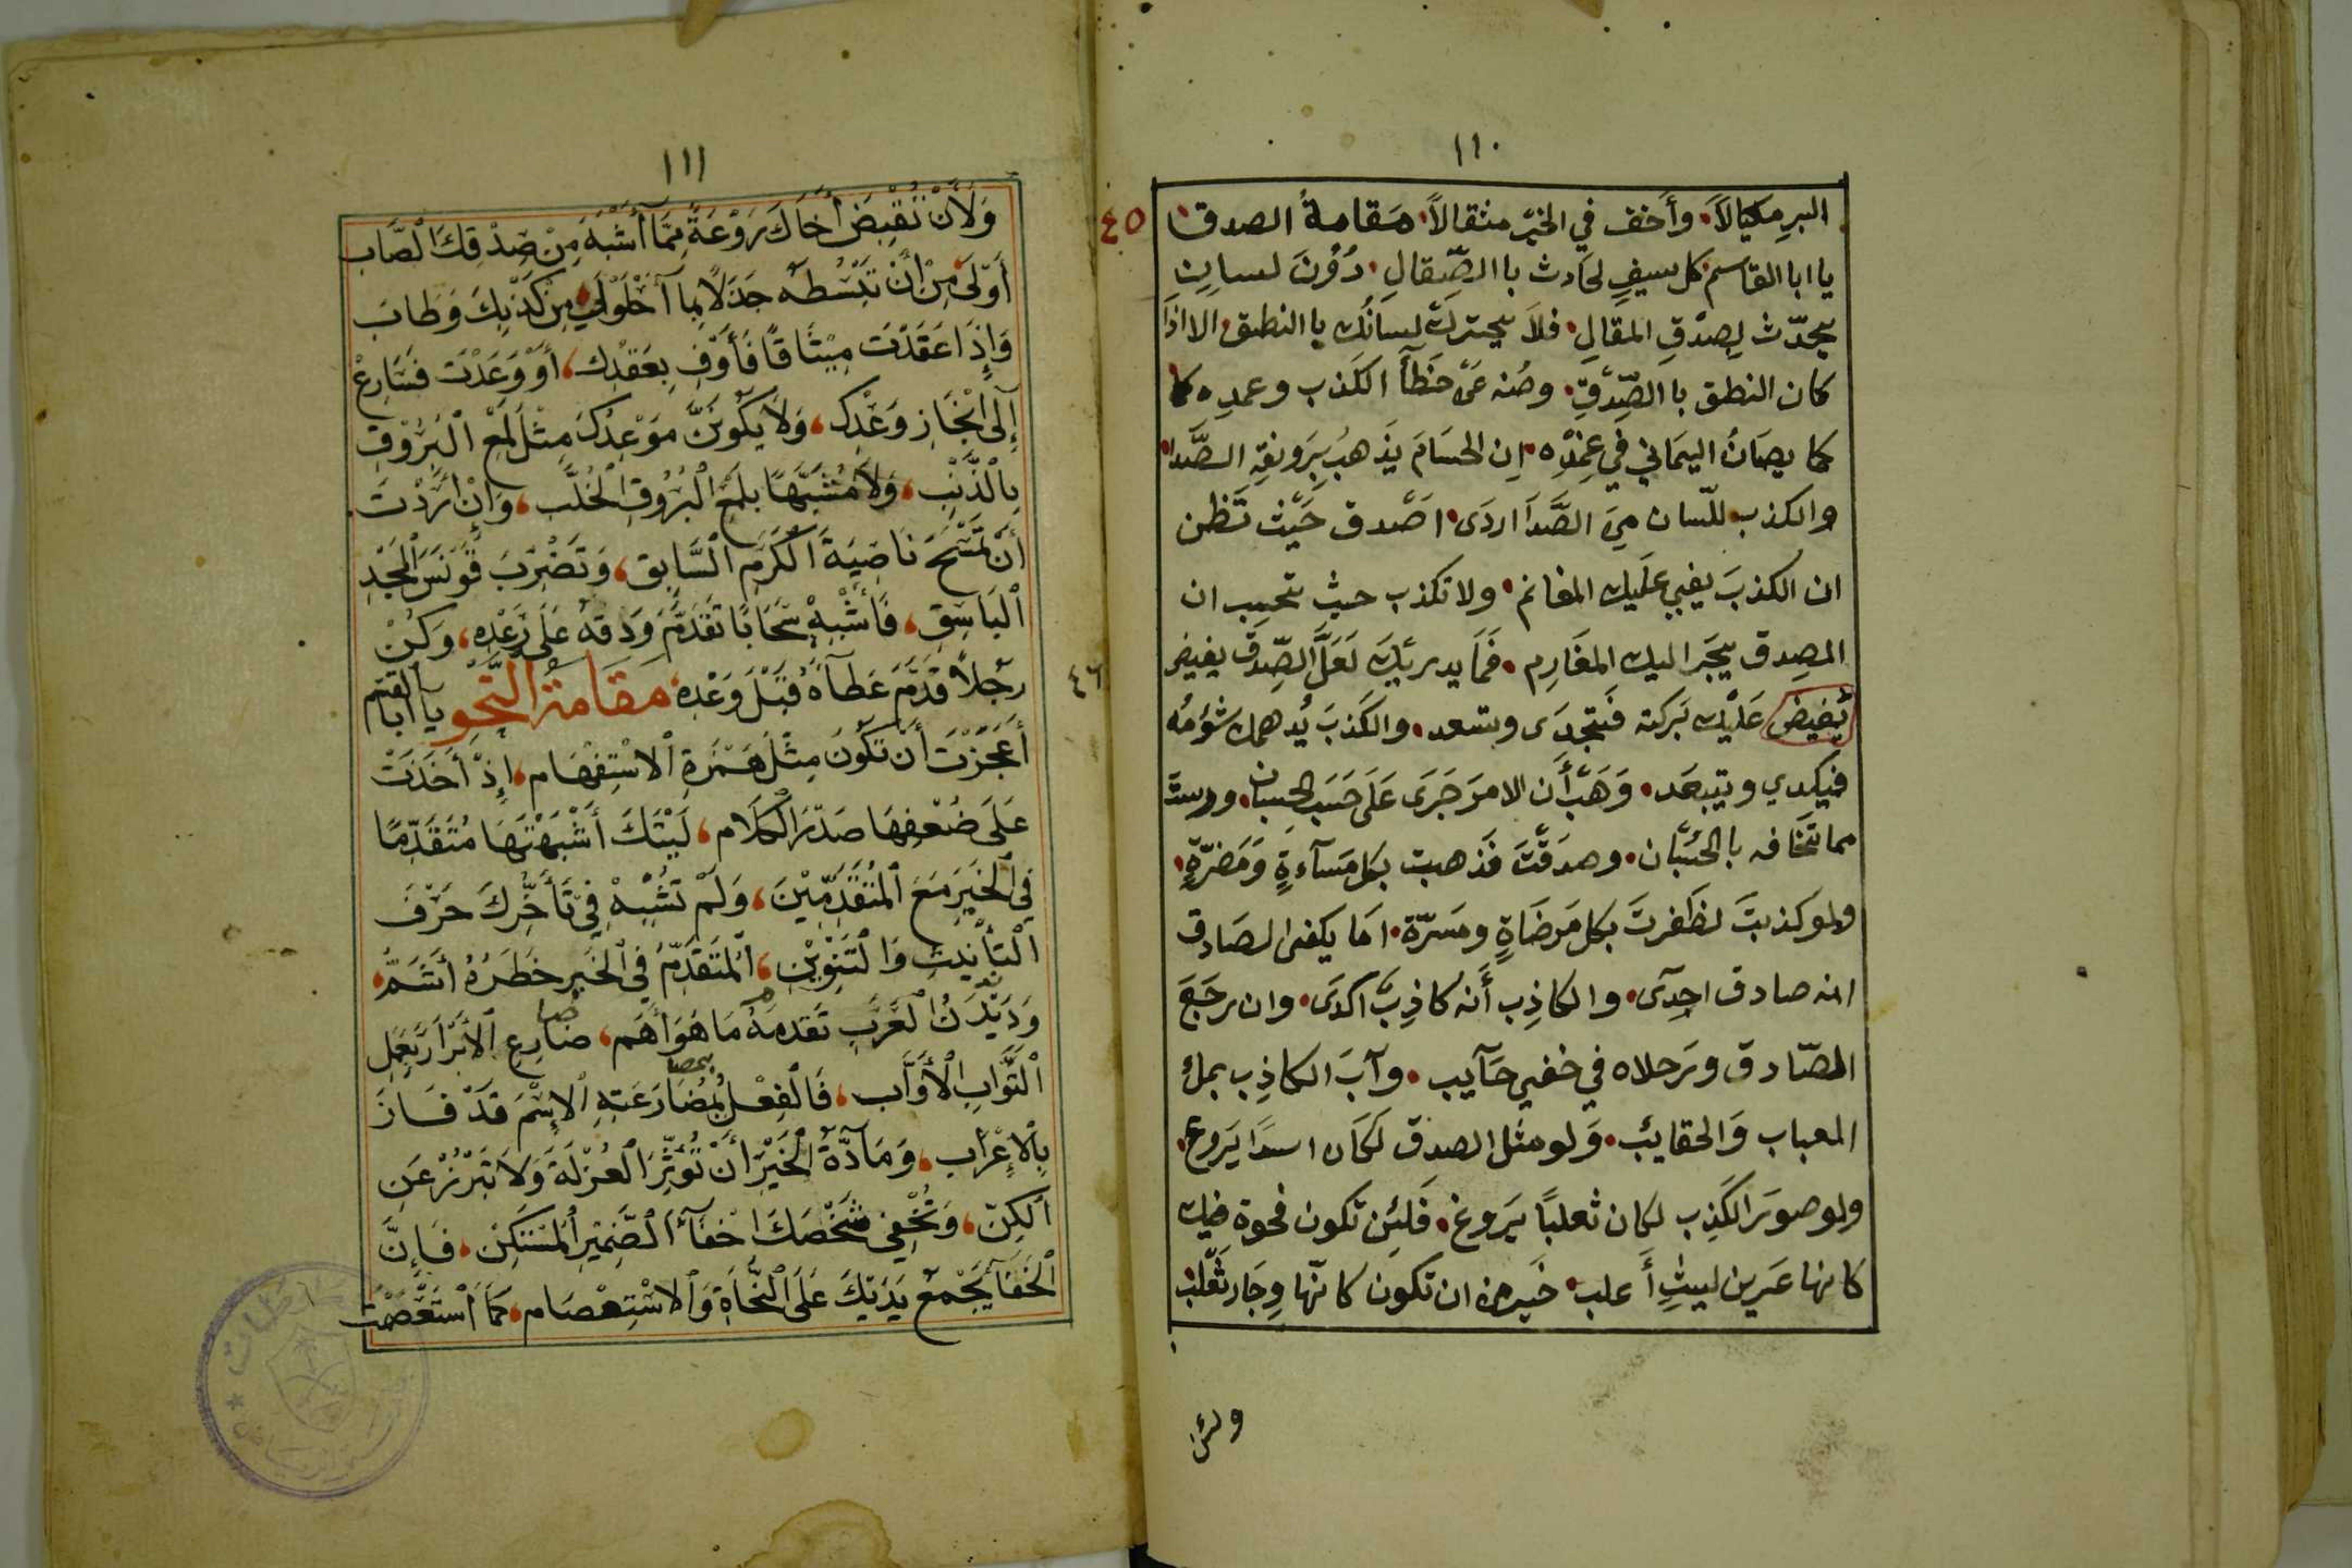 ١١٠
البرِ مكيالاً. وأَخف في الخيرْ مثقالاً. مَقامةُ الصدق
٤٥
يا ابا القاسم كل سيفٍ لحَادث با الصِّقالِ. دُوُنَ لسانٍ
يحدّث لِصدْقِ المقالِ. فلاَ يحترك لِسَانُك با النطق الا اذَا
كان النطق با الصِّدقِ. وصُنه عَن خَطأَ الكَذب وعمدِه كا
كما يصَانُ اليمَاني في غِمْدِه. اِن الحسَامَ يَذهبُ بِرَونقهِ الصَّدا
والكذب للّسان مِنَ الصَّدَا اردَى. اصْدق حَيْث تَظن
ان الكذبَ يفي عَلَيك المغانم. ولا تكذب حيث تحسب ان
الصِدق يجَر اليك المغَارِم. فمَا يدريَك لعَلَّ الصِّدقَ يفيض
يُفيض عَليْك بَركته فتجدَى وبتسعد. والكَذبَ يُدهمك شؤمُه
فيكدي ويتبعَد. وَهَبْ أَن الامرَ جَرَى عَلَى حَسَب الحسبان. ورست
مما تَخافه با الحسْبَان. وصدَقْتَ فذهبت بكل مَسآءةٍ وَمَضرّةٍ.
ولو كذبتَ لظَفرتَ بكل مَرضَاةٍ ومسرّة. امَا يكفى الصَادق
انه صادق اجِدَى. والكاذِب أَنه كاذِبٌ اكدَى. وان رجَعَ
الصّادق ورَجلاه في خفي حَآيب. وآبَ الكاذِب بملؤ
العباب وَالحقايب. وَلو مثل الصدق لكَان اسدًا يَروع.
ولو صورَ الكَذِب لكان ثعلبًا يَروغ. فَلئِن تكون فحوة فيك
كانها عَرين ليثٍ أَغلب. خَير من ان تكون كانّها وِجَار ثَعْلب
ولئن
١١١
وَلأَنْ تُقْبِضَ أَخَاكَ رَوْعَةً مِمَّا أَشْبَهَ مِنْ صِدْقِكَ الصَّاب
أَوْلَى مِنْ أَنْ تَبْسُطَهُ جَذَلًا بِمَا آحْلَوْلَى مِنْ كَذْبِكَ وَطَابَ
وَإِذَا عَقَدْتَ مِيْثَاقًا فَأَوْفِ بِعَقْدِك، أَوْ وَعَدْتَ فَسَارِعْ
إِلَى انْجَازِ وَعْدِك، وَلَا يَكُوْنَنَّ مَوْعِدُكَ مِثْلَ لَمْعِ الْبُرُوْقِ
بِالْذَّنْبِ، وَلَا مُشَبَّهًا بِلَمْعِ الْبُرُوقِ الْخُلَّب، وَإِنْ أَرَدْتَ
أَنْ تَمْسَحَ نَاصِيَةَ الْكَرَمِ السَّابِق، وَتَضْرِبَ قَوْنَسَ الْمَجْدِ
الْبَاسِقِ، فَأَشْبِهْ سَحَابًا تَقَدَّمَ وَدَقُهُ عَلَى رَعْدِهِ، وَكُنْ
رَجُلاً قَدَّمَ عَطَآءَهُ قَبْلَ وَعْدِهِ مَقَامَةُ النَّحْوِ يَا أَبَا القسم
٤٦
أَعَجَزْتَ أَنْ تَكُوْنَ مِثْلَ هَمْزَةِ الْاسْتِفْهَام، إِذْ أَخَذَتْ
عَلَى ضُعْفِهَا صَدْرَ الْكَلَام، لَيْتَكَ أَشْبَهْتَهَا مُتَقَدِّمًا
فِي الْخَيْرِ مَعَ الْمُتَقَدِّمِيْنَ، وَلَمْ تُشْبِهْ فِيْ تَأَخُّرِكَ حَرْفَ
التَأْنِيْثِ وَالتَنْوِيْنِ، الْمُتَقَدِّمُ فِي الْخَيْرِ خَطَرُهُ أَتَمُّ
وَدَيْدَنُ الْعَرَبِ تَقْدِمَةُ مَا هُوَ أَهَم، ضَارِعِ الْأَبْرَارَ بِعَمَلِ
التَّوَّابِ الْأَوَّاب، فَالْفِعْلُ بِمُضَارَعَتِهِ الْاسْمَ قَدْ فَازَ
بِالْإِعْرَاب، وَمَآدَّةُ الْخَيْرِ أَنْ تُؤْثِرَ الْعُزْلَةَ وَلَا تَبْرُزْ عَنِ
الكِنِّ، وَتُخْفِي شَخْصَكَ اخْفَآءَ الضَّمِيْرِ الْمُسْتَكِنْ، فَإِنَّ
الْخَفَآ يَجْمَعُ يَدَيْكَ عَلَى النَّجَاةِ وَالْاسْتِعْصَام، كَمَا اسْتَعْصَمَتْ